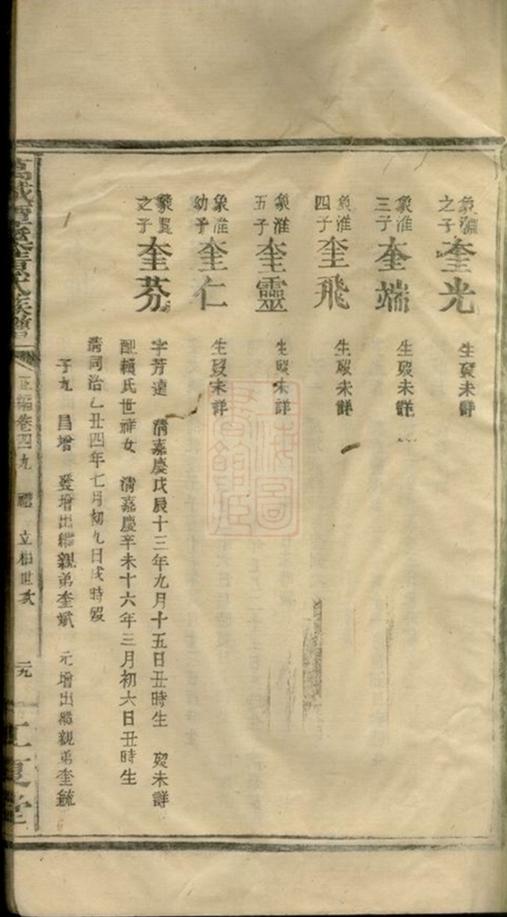 象瀛之子 奎光 生歿未詳
象淮三子 奎端 生歿未詳
象淮四子 奎飛 生歿未詳
象淮五子 奎靈 生歿未詳
象淮幼子 奎仁 生歿未詳
象賢之子 奎芬 字芳遠 清嘉慶戊辰十三年九月十五日丑時生 歿未詳
配賴氏世祥女 清嘉慶辛未十六年三月初六日丑時生
清同治乙丑四年七月初九日戌時歿
子九 昌增 發增出繼親弟奎斌 元增出繼親弟奎毓
氏族譜
正編卷四九 禮 立柏世次
江夏堂